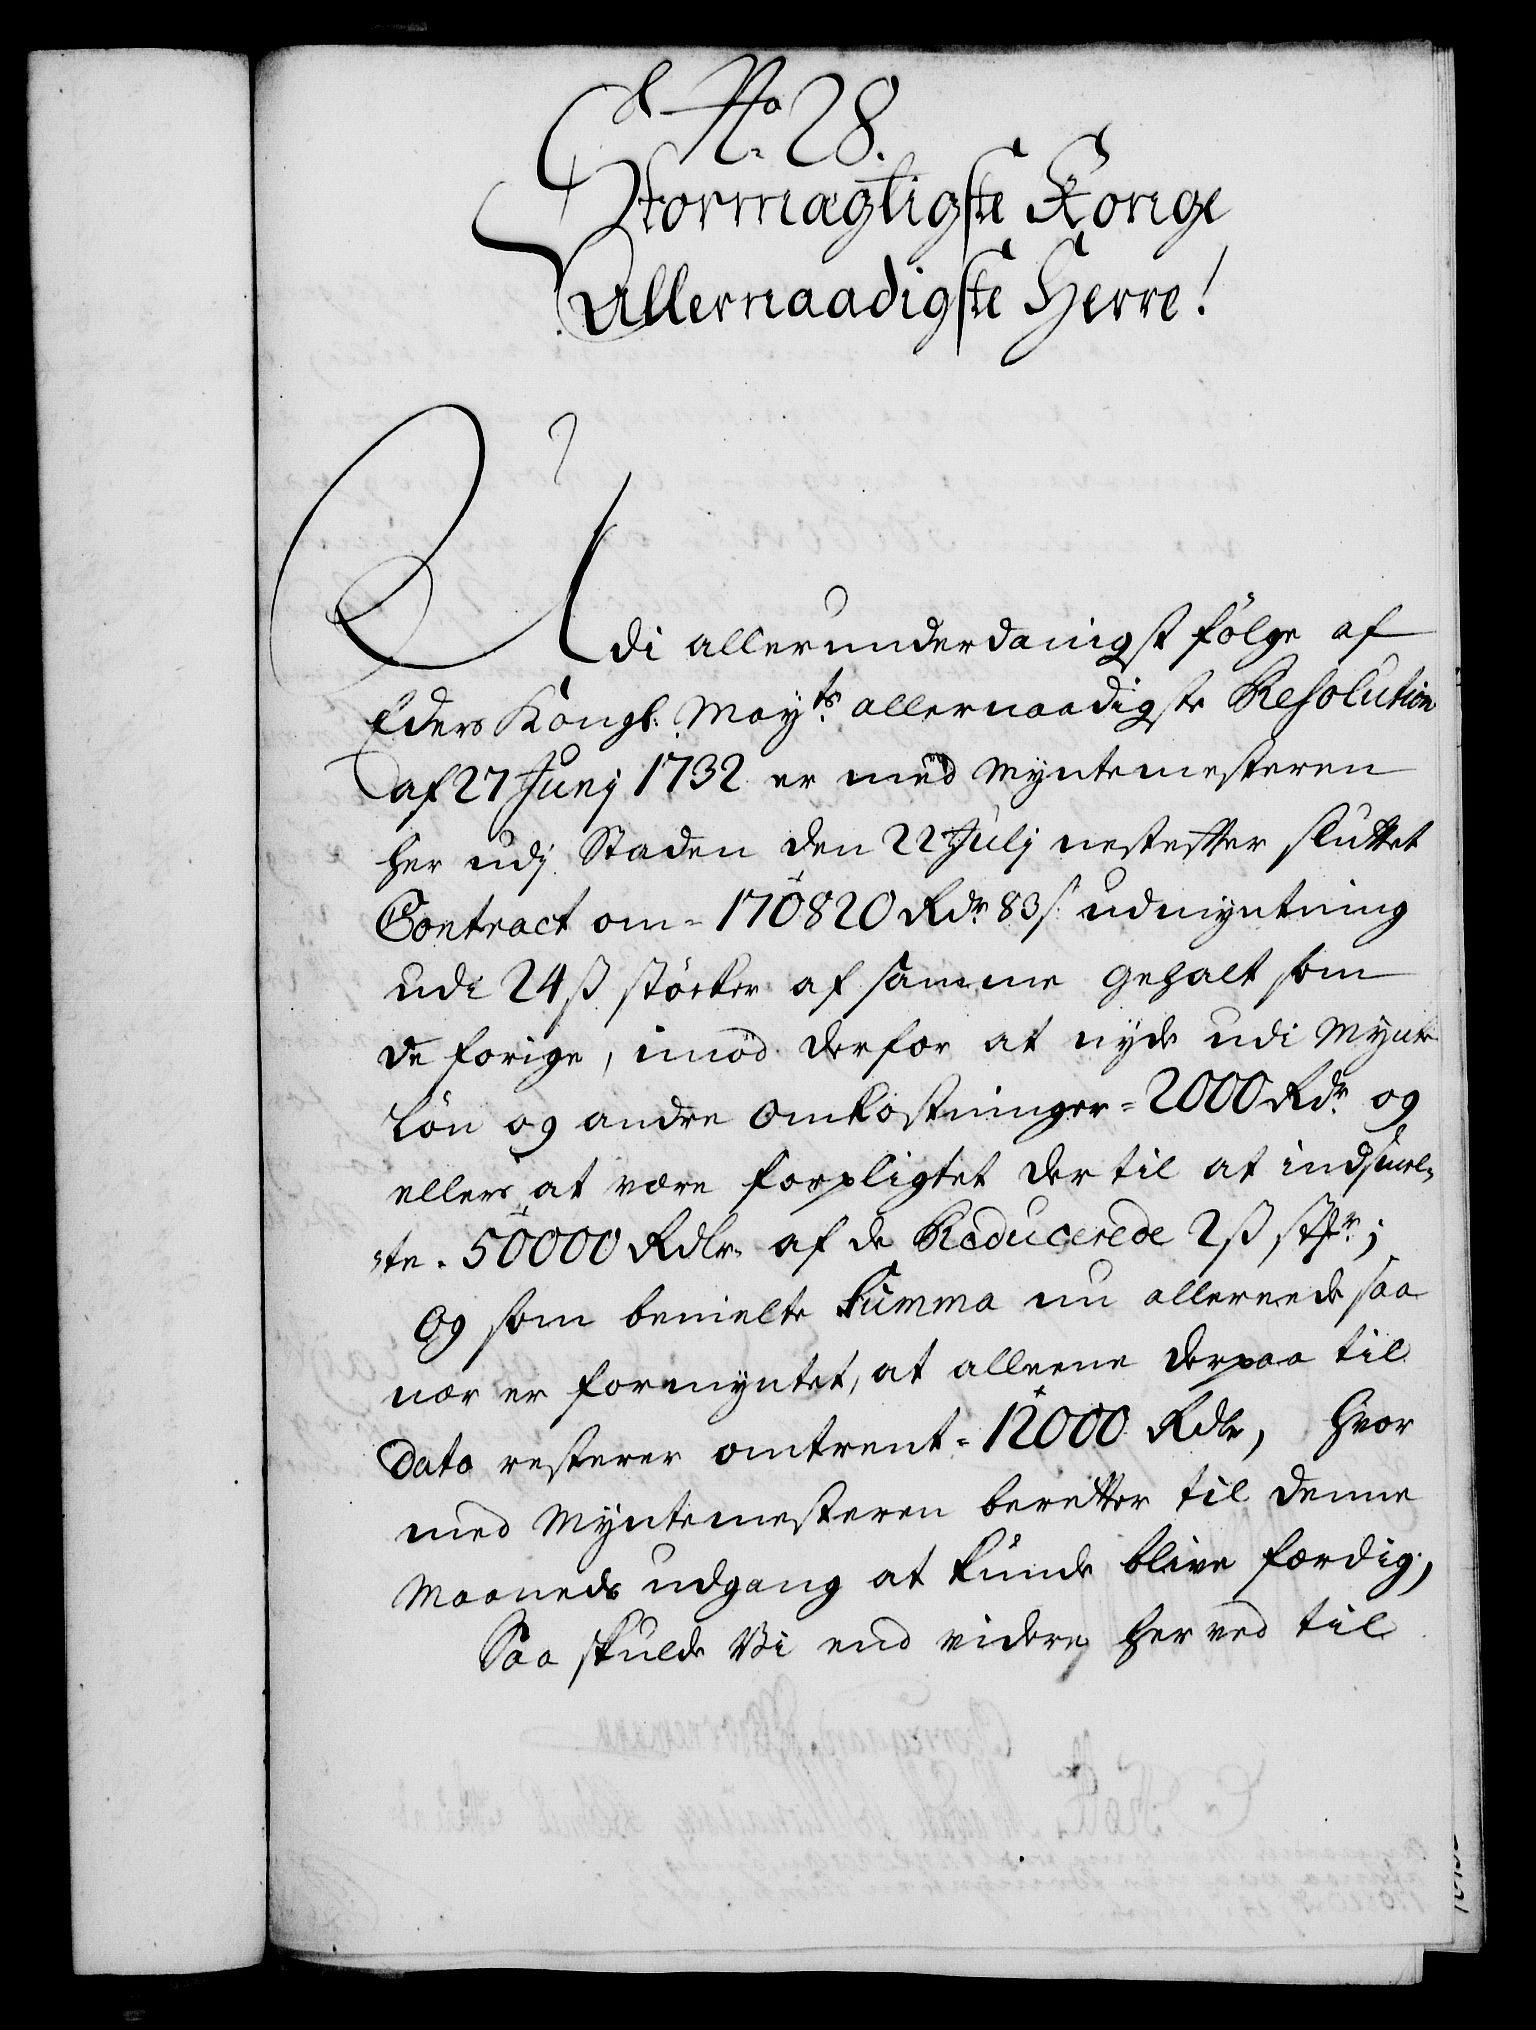 No 28.
Stormægtigste Konge
Allernaadigste Herre!
Udi allerunderdanigst følge af
Eders Kongl: Mayts allernaadigste Resolution
af 27 Junj 1732 er med Myntemesteren
her udj Staden den 22 Julj nestefter sluttet
Contract om = 170820 Rdr 83 s: udmyntning
udi 24 ß støcker af samme gehalt som
de forige, imod derfor at nyde udi Mynte
Løn og andre Omkostninger = 2000 Rdr og
ellers at være forpligtet der til at indsmel-
te = 50000 Rdlr af de Reducerede 2 ß stkr;
Og som bemelte Summa nu allereede saa
nær er formyntet, at alleene derpaa til
Dato resterer omtrent = 12000 Rdlr, hvor
med Myntemesteren beretter til denne
Maaneds udgang at kunde blive færdig,
Saa skulde Vi end videre her ved til